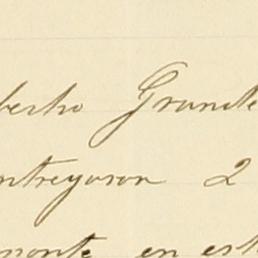 berto Grande
ntregaron 2
monte en est